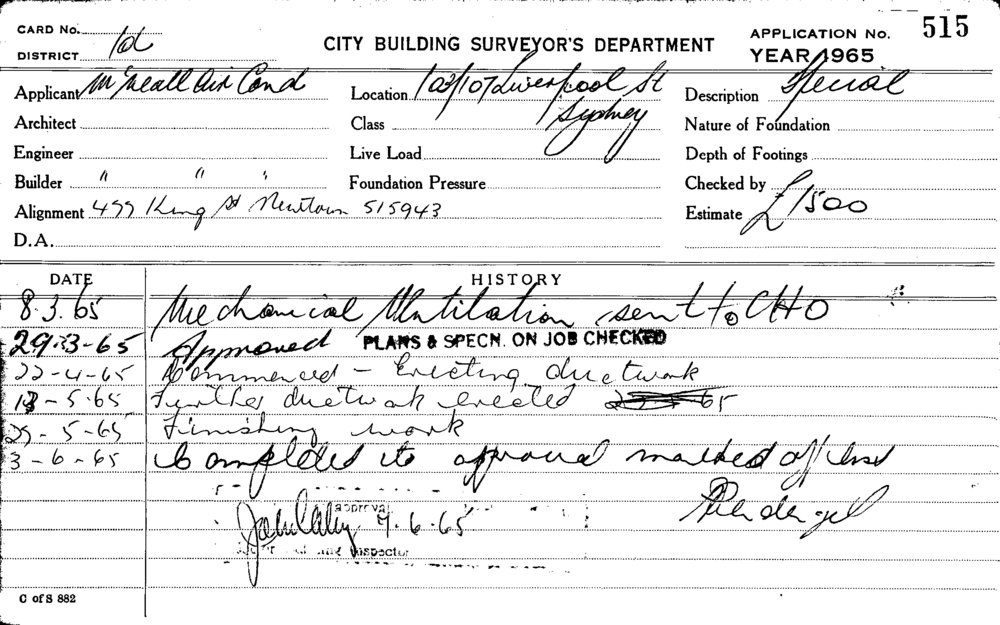 CARD No.
CITY BUILDING SURVEYOR'S DEPARTMENT
APPLICATION No. 515
DISTRICT
YEAR 1965
Applicant Air Cond
Location 103/107 Liverpool St
Sydney
Description Special
Architect
Class
Nature of Foundation
Engineer
Live Load
Depth of Footings
Builder " " "
Foundation Pressure
Checked by
Alignment 499 King St Newtown 515943
Estimate £1500
D.A.
DATE HISTORY
8.3.65 Mechanical Ventilation sent to CHO
29.3-65 Approved PLANS & SPECN. ON JOB CHECKED
22-4-65 Commenced - Erecting ductwork
13-5.65 Further ductwork erected
25-5-65 Finishing work
3-6-65 Completed to approval marked off
approval
7.6.65
Inspector
C of S 882